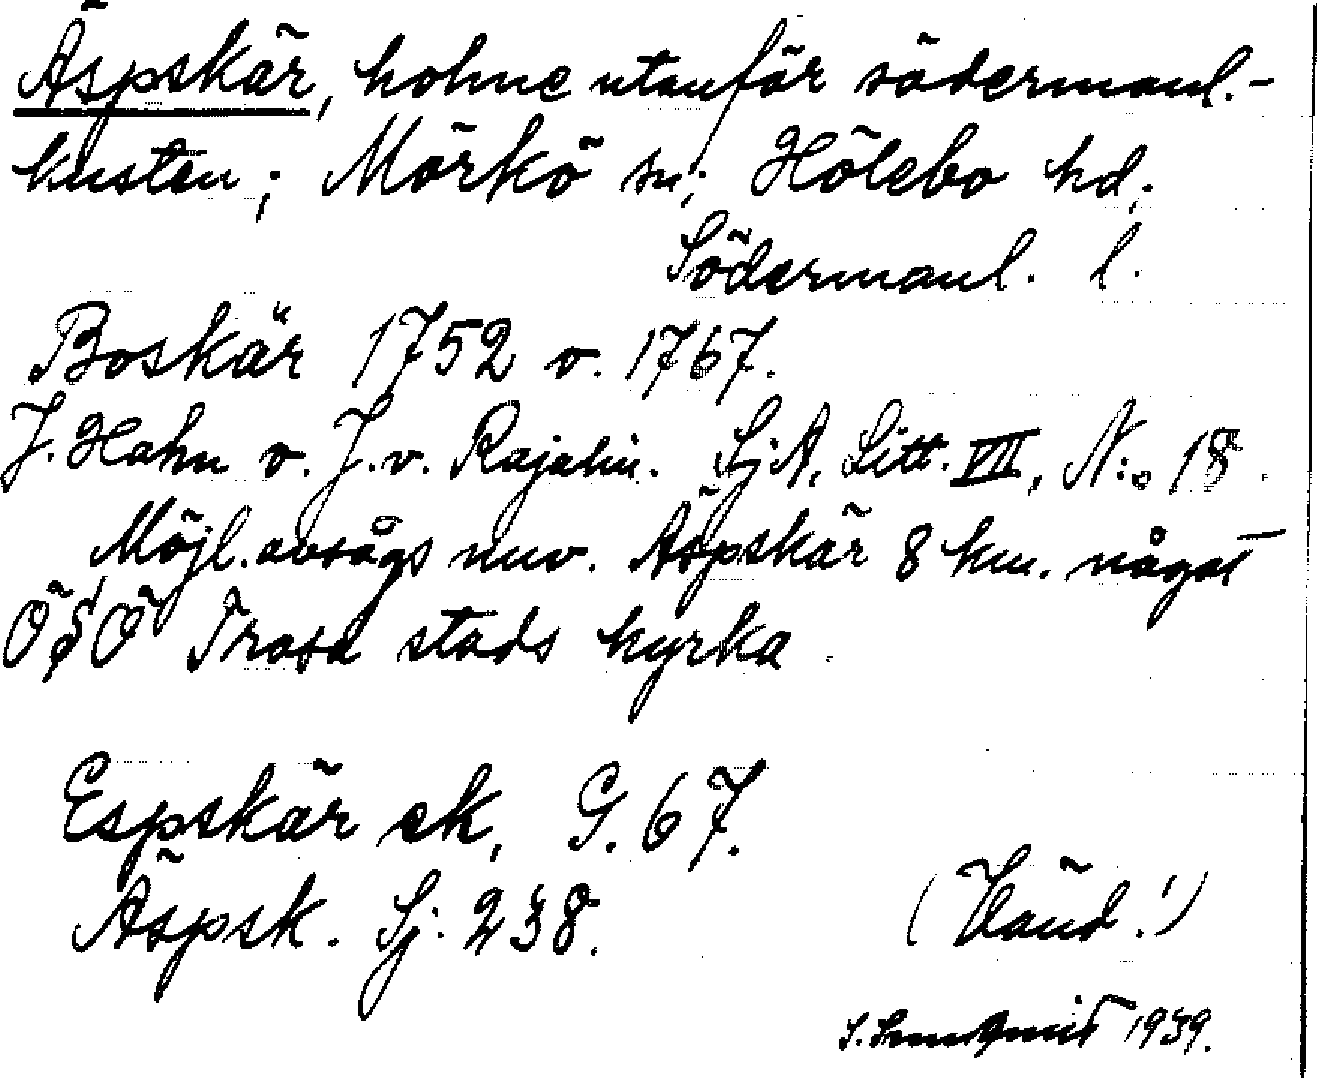 Äspskär, holme utanför södermanl.-
kusten; Mörkö sn; Hölebo hd;
Södermanl. l.
Boskär 1752 o. 1767.
J. Hahn o. J. v. Rajalin. SjA, Litt. VII, N:o 18.
Möjl. avsågs nuv. Äspskär 8 km. något
ÖSÖ Trosa stads kyrka.
Espskär ek, G. 67.
Äspsk. Sj. 238.
(Vänd!)
1939.